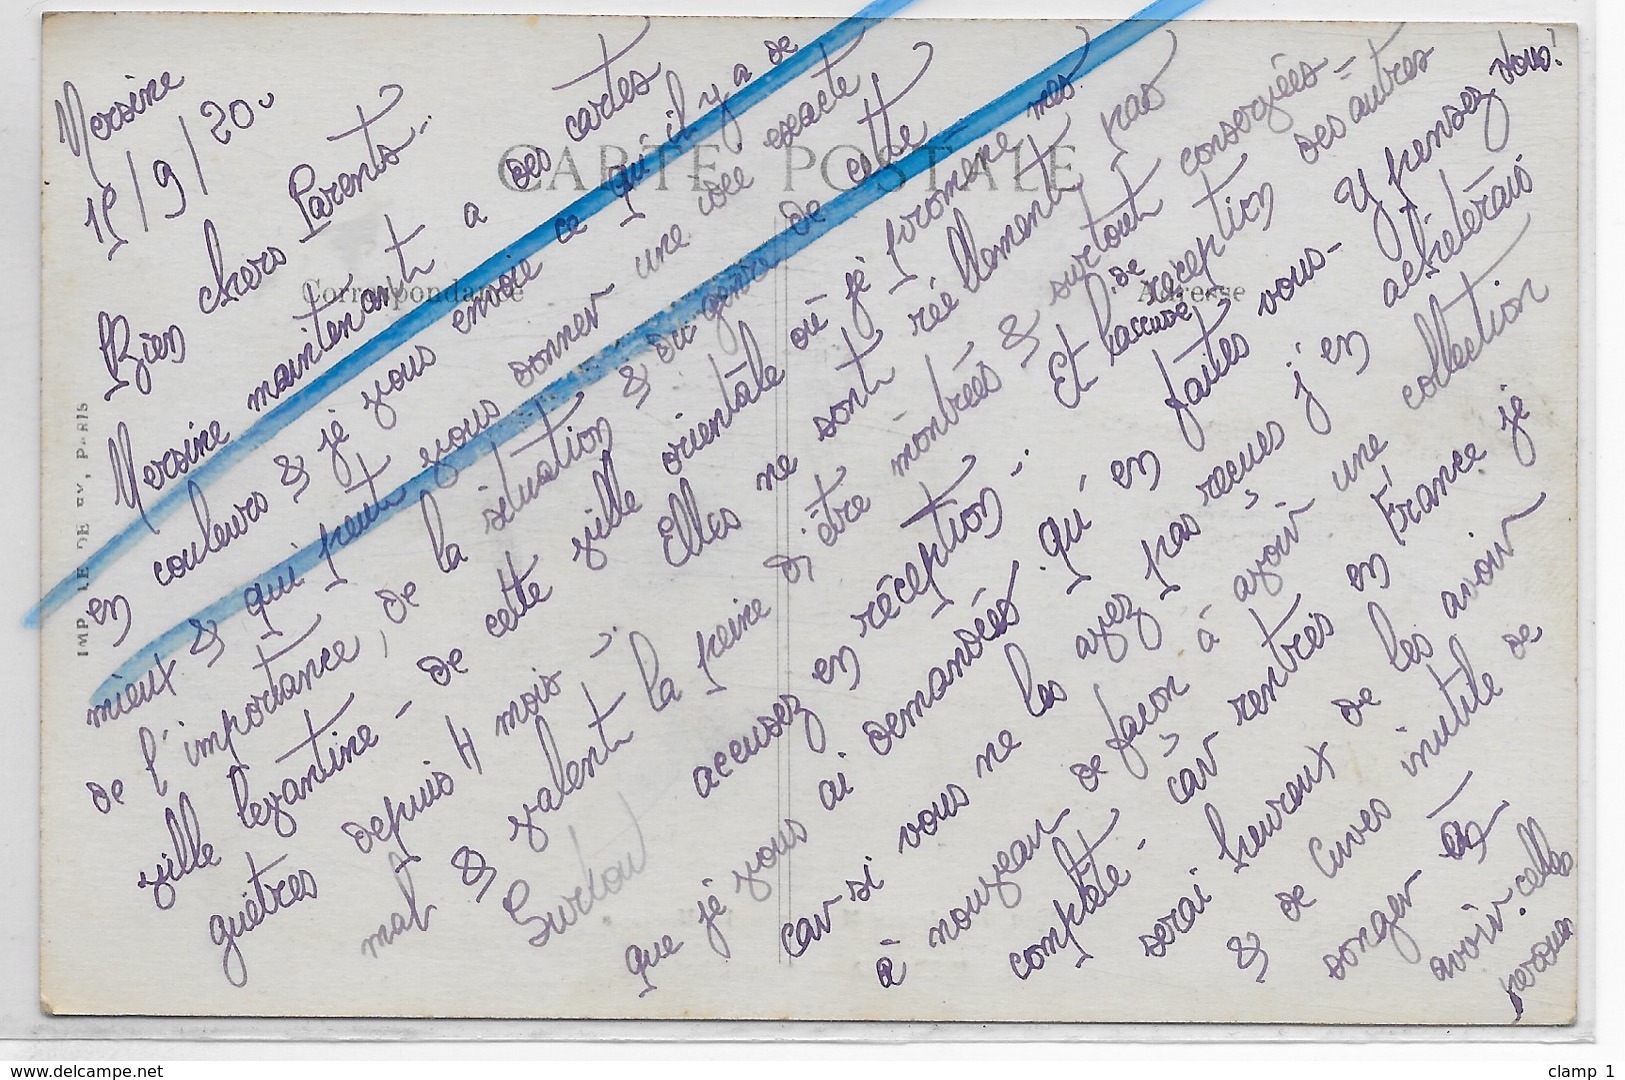 Mersine
15/9/20.
Bien chers Parents..
Mersine maintenant a des cartes
en couleurs & je vous envoie ce qu'il y a de
mieux & qui peut vous donner une idée exacte
de l'importance, de la situation & du genre de cette
ville levantine - de cette ville orientale où je promène mes
guêtres depuis 4 mois -. Elles ne sont réellement pas
mal & valent la peine d'être montrées & surtout conservées =
Surtout accusez en réception -. Et l'accusé de réception des autres
que je vous ai demandées qu'en faites vous - Y pensez vous!
car si vous ne les avez pas reçues j'en achèterais
à nouveau de façon à avoir une collection
complète - car rentrés en France je
serai heureux de les avoir
& de inutile de
songer en
avoir celles
CARTE POSTALE
Correspondance
Adresse
IMP. LE DE EY, PARIS
www.delcampe.net
clamp 1